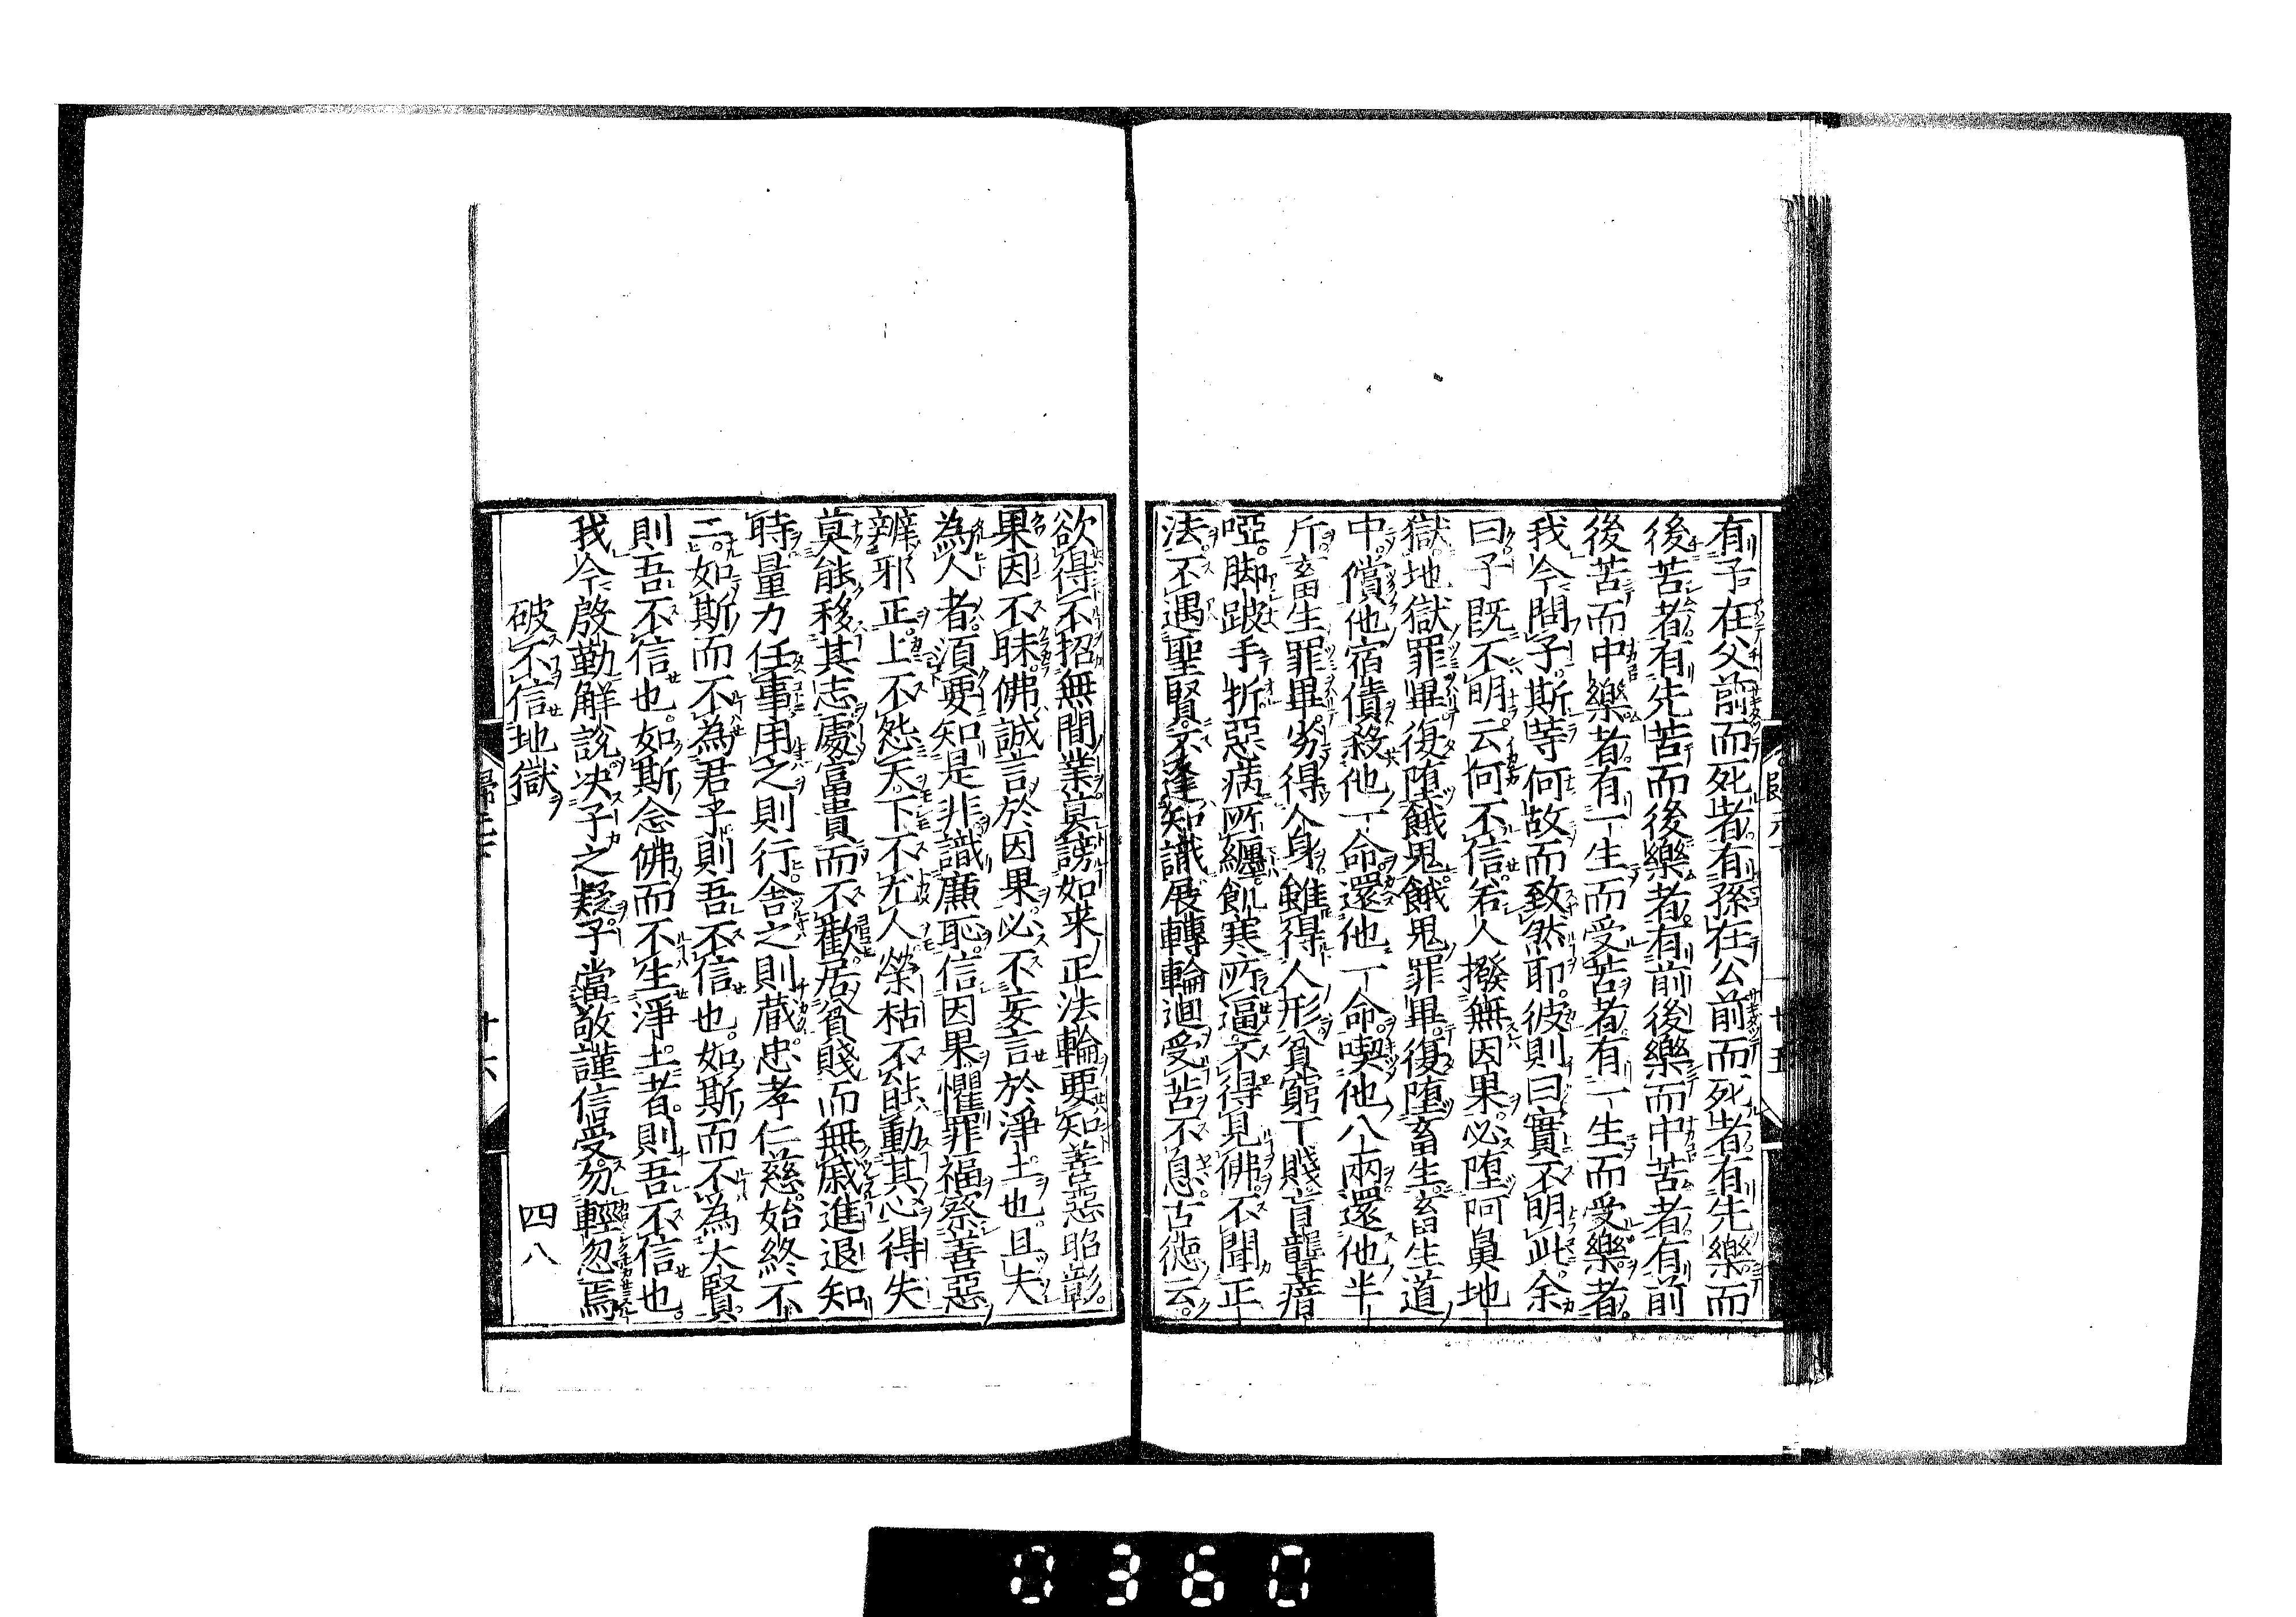 有子在父前而死者有孫在公前而死者有先樂而
後苦者有先苦而後樂者有前後樂而中苦者有前
後苦而中樂者有一生而受苦者有一生而受樂者
我今問子斯等何故而致然耶彼則曰實不明此余
曰子既不明云何不信若人撥無因果必墮阿鼻地
獄地獄罪畢復墮餓鬼餓鬼罪畢復墮畜生畜生道
中償他宿債殺他一命還他一命喫他八兩還他半
斤畜生罪畢劣得人身雖得人形貧窮下賤盲聾瘖
啞脚跛手折惡病所纏飢寒所逼不得見佛不聞正
法不遇聖賢不逢知識展轉輪迴受苦不息古德云
欲得不招無間業莫謗如来正法輪要知善惡昭彰
果因不昧佛誠言於因果必不妄言於淨土也且夫
為人者須要知是非識廉恥信因果懼罪福察善惡
辨邪正上不怨天下不尤人榮枯不能動其心得失
莫能移其志處富貴而不歡居貧賤而無戚進退知
時量力任事用之則行舍之則蔵忠孝仁慈始終不
二如斯而不為君子則吾不信也如斯而不為大賢
則吾不信也如斯念佛而不生淨土者則吾不信也
我今慇勤解説决子之疑子當敬謹信受勿輕忽焉
破不信地獄
四八
廿五
廿六
0360